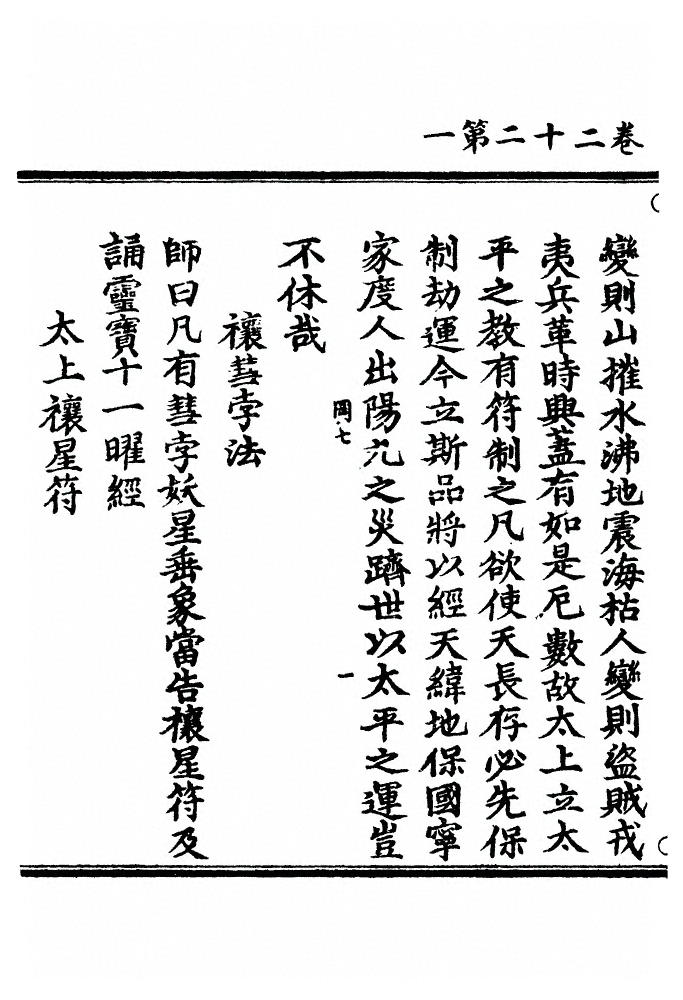 卷二十二第一
變則山摧水沸地震海枯人變則盜賊戎
夷兵革時興蓋有如是厄數故太上立太
平之教有符制之凡欲使天長存必先保
制劫運今立斯品將以經天緯地保國寧
家度人出陽九之災躋世以太平之運豈
岡七
一
不休哉
禳彗孛法
師曰凡有彗孛妖星垂象當告禳星符及
誦靈寶十一曜經
太上禳星符